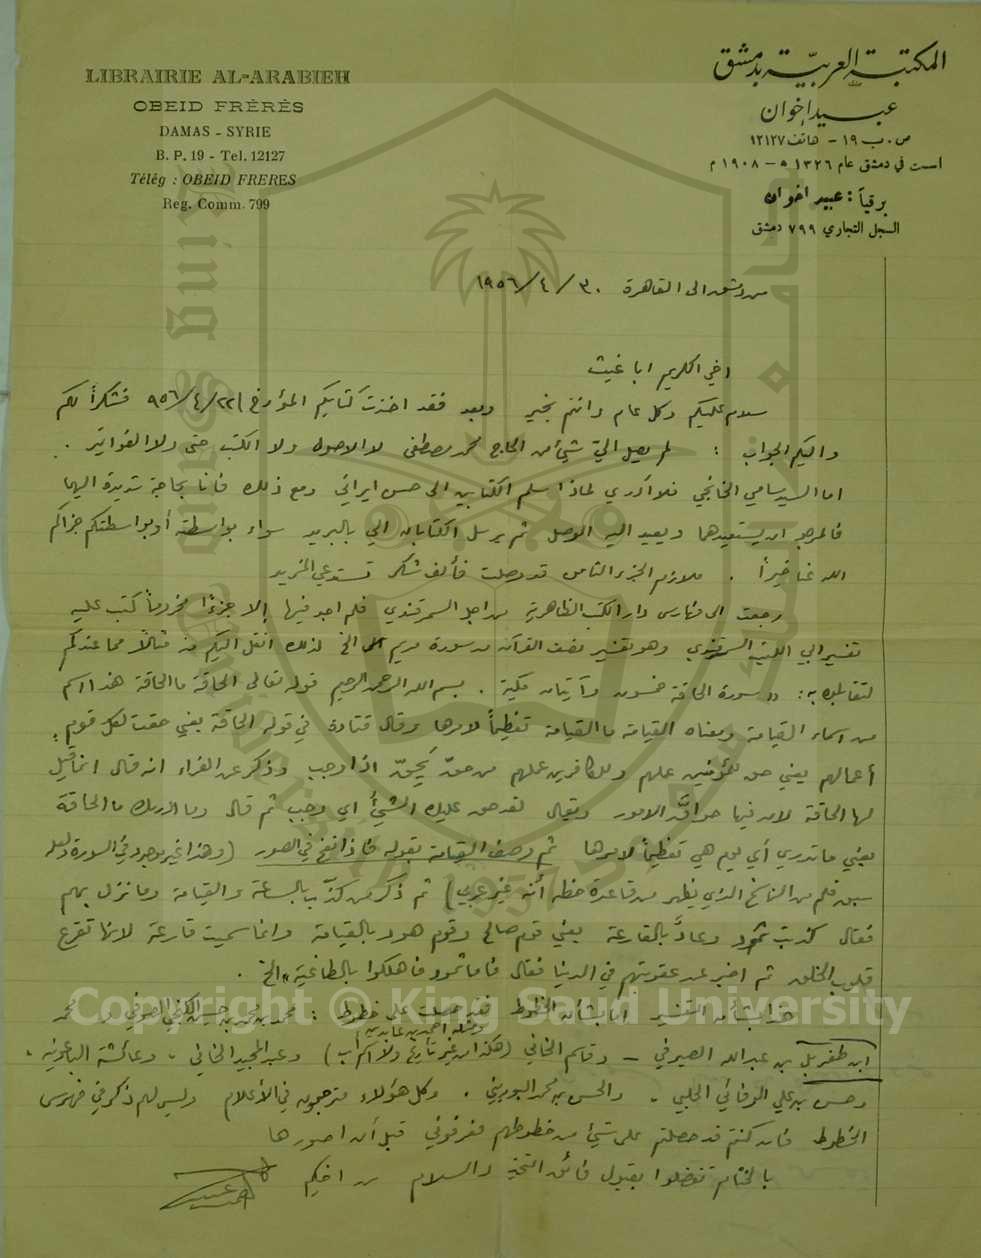 LIBRAIRIE AL-ARABIEH
OBEID FRÉRÉS
DAMAS - SYRIE
B. P. 19 - Tel. 12127
Télég : OBEID FRERES
Reg. Comm. 799
المكتبة العربية بدمشق
عبيد إخوان
ص.ب ١٩ - هاتف ١٢١٢٧
اسست في دمشق عام ١٣٢٦ ه - ١٩٠٨ م
برقياً : عبيد اخوان
السجل التجاري ٧٩٩ دمشق
من دمشق الى القاهرة ٣٠ / ٤ / ١٩٥٦
اخي الكريم ابا غيث
سلام عليكم وكل عام وانتم بخير وبعد فقد اخذت كتابكم المؤرخ ٢٢/٤/٩٥٦ فشكراً لكم
واليكم الجواب : لم يصل اليّ شيئ من الحاج محمد مصطفى لا الاصول ولا الكتب حتى ولا الفواتير .
اما السيد سامي الخانجي فلا أدري لماذا سلم الكتابين الى حسن ايراني ومع ذلك فانا بحاجة شديدة اليهما
فالمرجو ان يستعيدهما ويعيد اليه الوصل ثم يرسل الكتابان الي بالبريد سواء بواسطته أو بواسطتكم جزاكم
الله عنا خيراً . ملازم الجزء الثامن قد وصلت فألف شكر تستدعي المزيد
رجعت الى فهارس دار الكتب الظاهرية من اجل السمرقندي فلم اجد فيها إلا جزءاً مخروماً كتب عليه
تفسير ابي الليث السمرقندي وهو تفسير نصف القرآن من سورة مريم الخ لذلك انقل اليكم منه مثالاً مما عندكم
لتقابلوه به : « سورة الحاقة خمسون وآيتان مكية . بسم الله الرحمن الرحيم قوله تعالى الحاقة ما الحاقة هذا اسم
من اسماء القيامة ومعناه القيامة ما القيامة تعظيماً لامرها وقال قتادة في قوله الحاقة يعني حقت لكل قوم
أعمالهم يعني حق للمؤمنين عملهم وللكافرين عملهم من حقّ يَحِقّ اذا وجب وذكر عن الفراء انه قال انما قيل
لها الحاقة لان فيها حواقّ الامور ويقال لقد حق عليك الشيئ اي وجب ثم قال وما ادريك ما الحاقة
يعني ما تدري أي يوم هي تعظيماً لامرها ثم وصف القيامة بقوله فاذا نفخ في الصور (وهذا غير موجود في السورة ولعله
سبق قلم من الناسخ الذي يظهر من قاعدة خطه أنه غير عربي) ثم ذكر من كذّب بالساعة والقيامة وما نزل بهم
فقال كذبت ثمود وعادٌ بالقارعة يعني قوم صالح وقوم هود بالقيامة وانما سميت قارعة لانها تقرع
قلوب الخلق ثم اخبر عن عقوبتهم في الدنيا فقال فاما ثمود فاهلكوا بالطاغية» الخ .
هذا بشأن التفسير اما بشأن الخطوط فقد حصلت على خطوط : محمد بن محمد بن حسين و محمد
وخطه احمد بن عابدين
ابن طغربل بن عبدالله الصيرفي - وقاسم الخاني (هكذا من غير تأريخ ولا اسم اب) وعبد المجيد الخاني - وعائشة الباعونية -
وحسن بن علي الوفائي الحلبي - والحسن بن محمد البوريني . وكل هؤلاء مترجمون في الأعلام وليس لهم ذكر في فهرس
الخطوط فان كنتم قد حصلتم على شيئ من خطوطهم فعرفوني قبل أن اصورها
بالختام تفضلوا بقبول فائق التحية والسلام من اخيكم
احمد عبيد
Copyright © King Saud University
King Saud University
1957